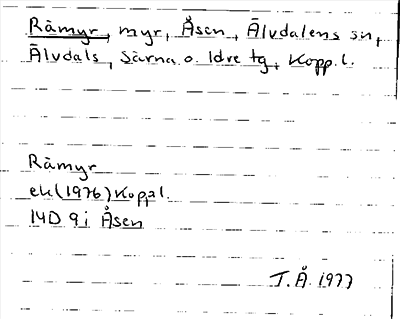 Råmyr, myr, Åsen, Älvdalens sn,
Älvdals, Särna o. Idre tg, Kopp. l.
Råmyr
ek (1976) Kopp.l.
14D 9i Åsen
T.Å. 1977